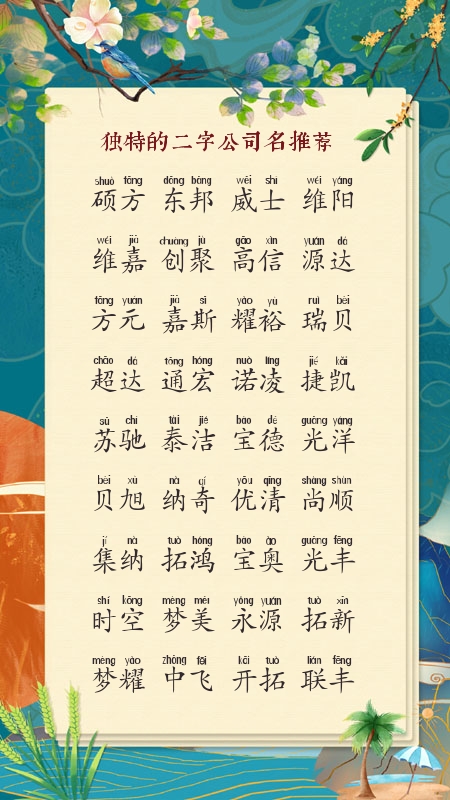 独特的二字公司名推荐
shuò fāng dōng bāng wēi shì wéi yáng
硕方 东邦 威士 维阳
wéi jiā chuàng jù gāo xìn yuán dá
维嘉 创聚 高信 源达
fāng yuán jiā sī yào yù ruì bèi
方元 嘉斯 耀裕 瑞贝
chāo dá tōng hóng nuò líng jié kǎi
超达 通宏 诺凌 捷凯
sū chí tài jié bǎo dé guāng yáng
苏驰 泰洁 宝德 光洋
bèi xù nà qí yōu qīng shàng shùn
贝旭 纳奇 优清 尚顺
jí nà tuò hóng bǎo ào guāng fēng
集纳 拓鸿 宝奥 光丰
shí kōng mèng měi yǒng yuán tuò xīn
时空 梦美 永源 拓新
mèng yào zhōng fēi kāi tuò lián fēng
梦耀 中飞 开拓 联丰